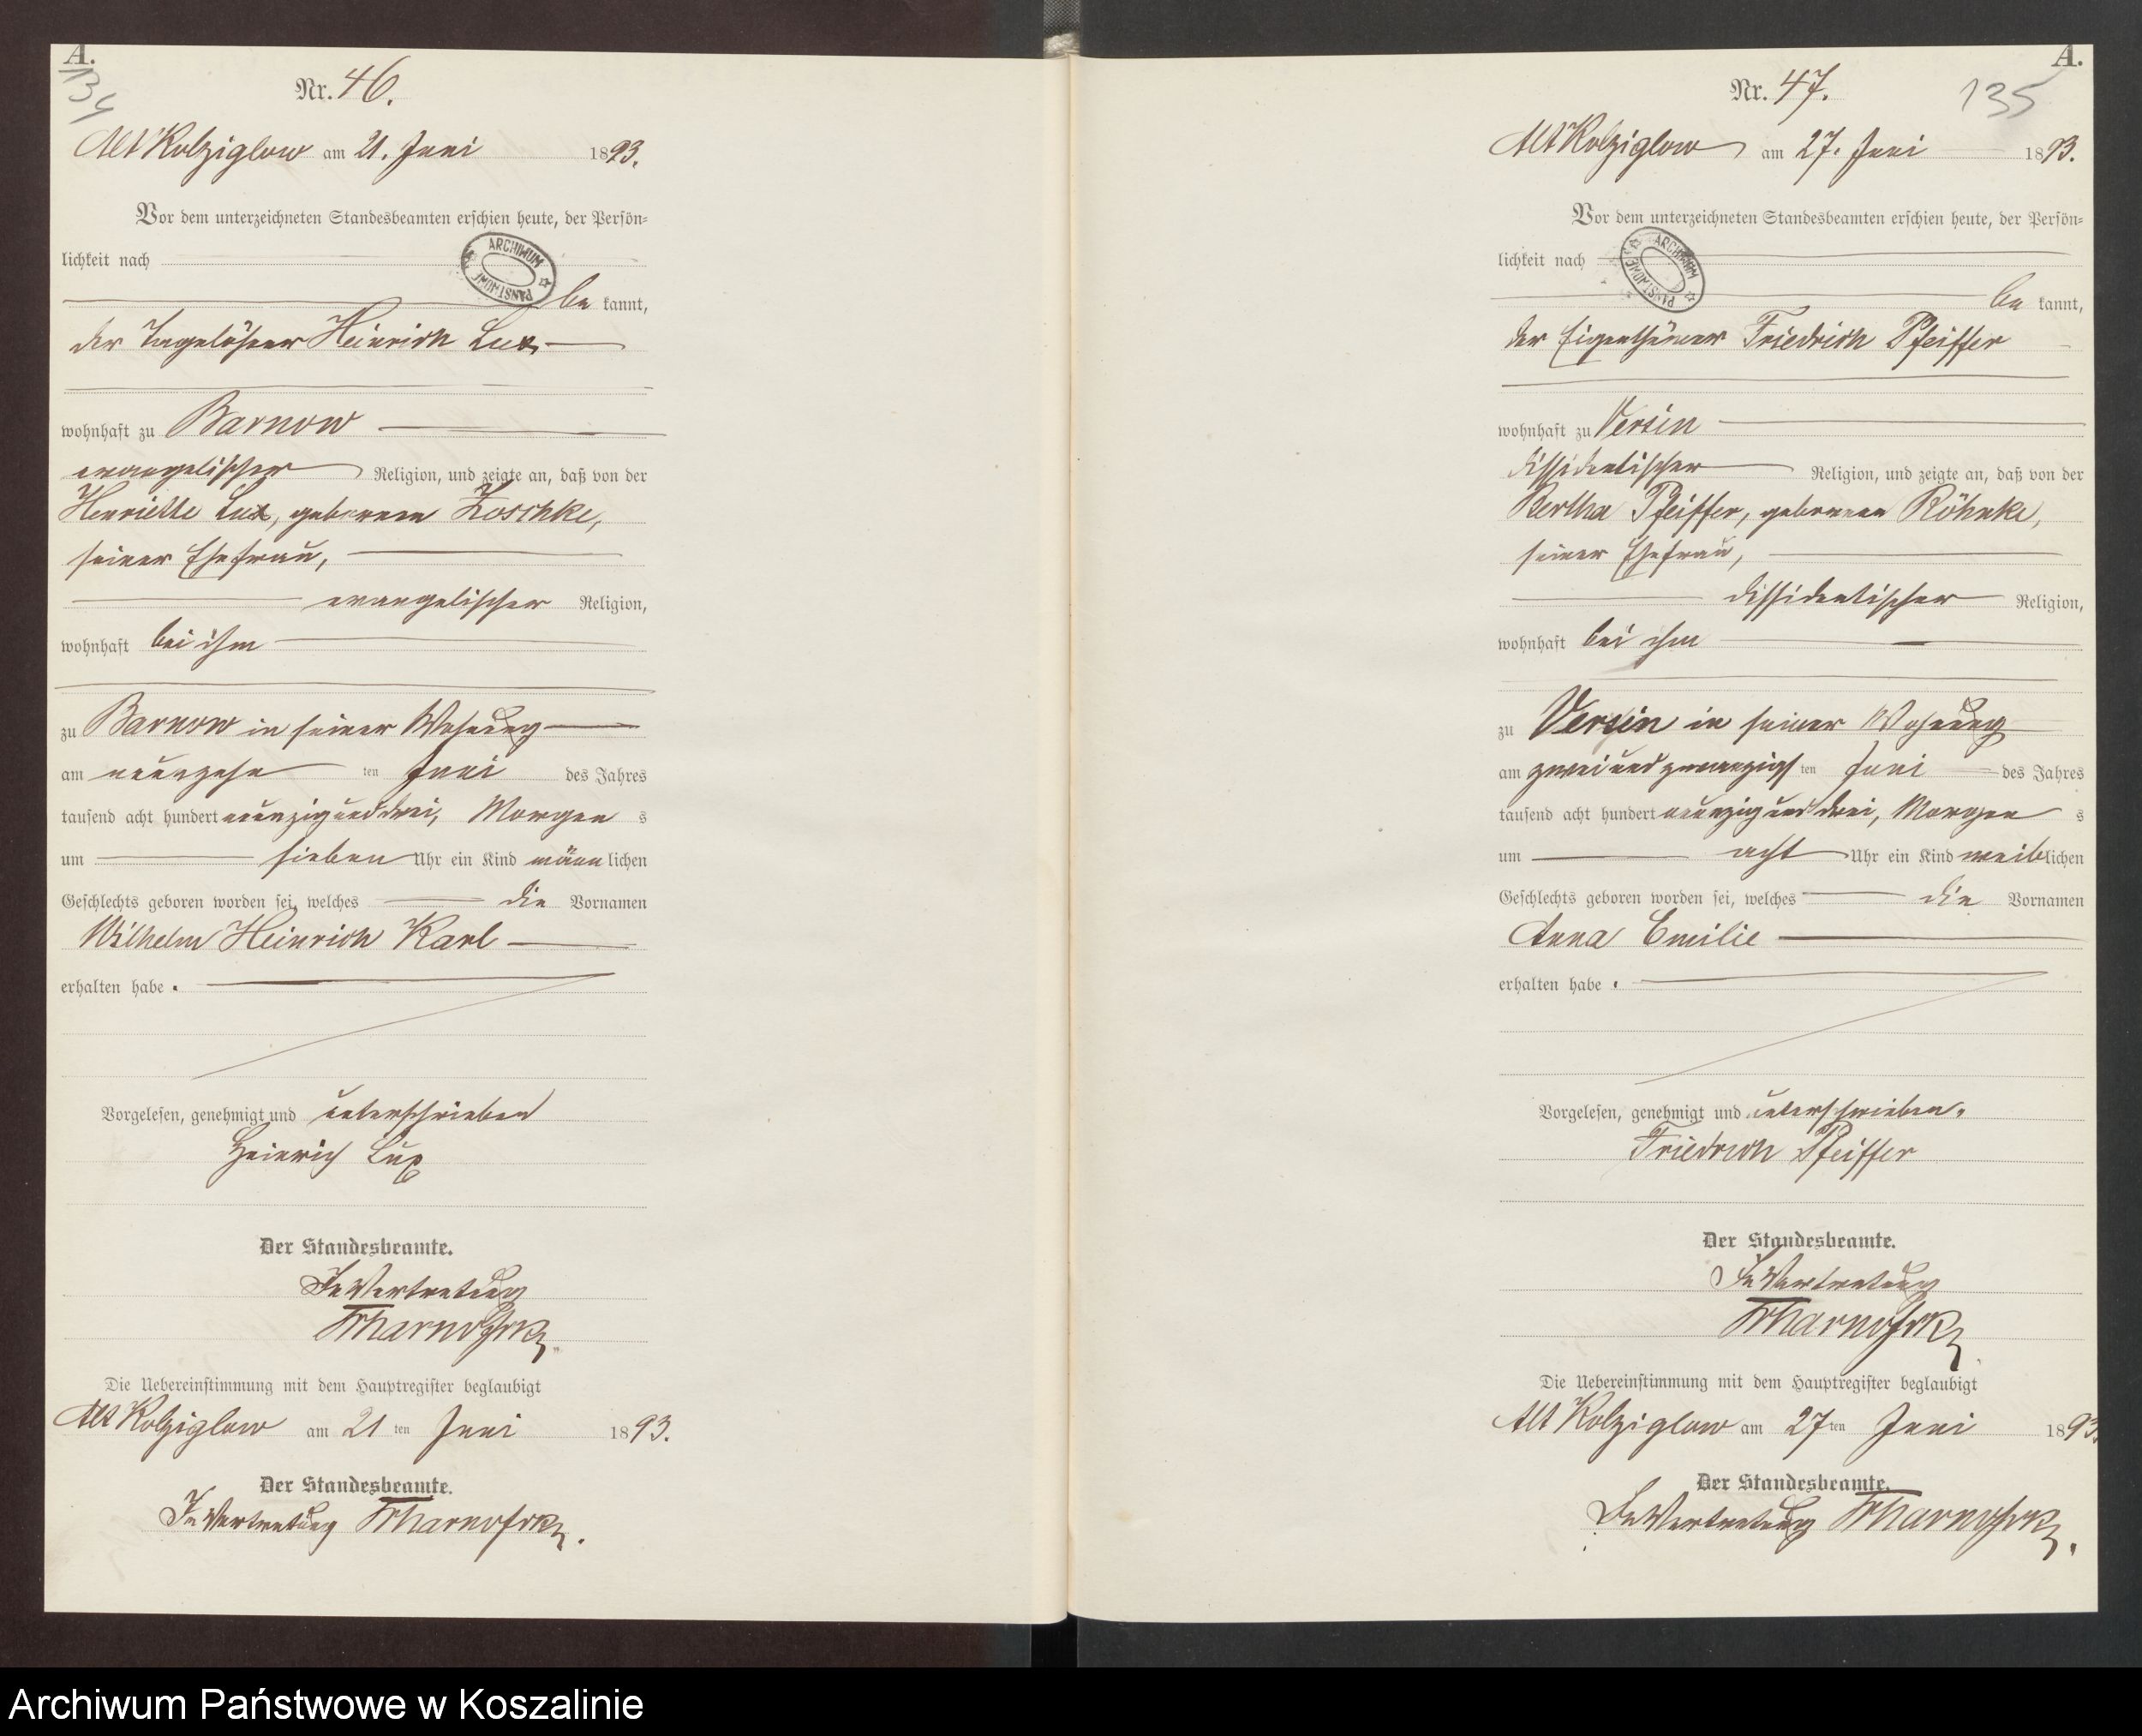 A.
134
Nr. 46.
Alt Kolziglow am 21. Juni 1893.
Vor dem unterzeichneten Standesbeamten erschien heute, der Persön-
lichkeit nach
be kannt,
der Tagelöhner Heinrich Lux
wohnhaft zu Barnow
evangelischer Religion, und zeigte an, daß von der
Henriette Lux, geborenen Koschke,
seiner Ehefrau,
evangelischer Religion,
wohnhaft bei ihm
zu Barnow in seiner Wohnung
am neunzehn ten Juni des Jahres
tausend acht hundert neunzig und drei, Morgen s
um sieben Uhr ein Kind männ lichen
Geschlechts geboren worden sei, welches die Vornamen
Wilhelm Heinrich Karl
erhalten habe.
Vorgelesen, genehmigt und unterschrieben
Heinrich Lux
Der Standesbeamte.
In Vertretung
Die Uebereinstimmung mit dem Hauptregister beglaubigt
Alt Kolziglow am 21 ten Juni 1893.
Der Standesbeamte.
In Vertretung
ARCHIWUM PAŃSTWOWE
A.
135
Nr. 47.
Alt Kolziglow am 27. Juni 1893.
Vor dem unterzeichneten Standesbeamten erschien heute, der Persön-
lichkeit nach
be kannt,
der Eigenthümer Friedrich Pfeiffer
wohnhaft zu Versin
dissidentischer Religion, und zeigte an, daß von der
Bertha Pfeiffer, geborenen Röhnke,
seiner Ehefrau,
dissidentischer Religion,
wohnhaft bei ihm
zu Versin in seiner Wohnung
am zwei und zwanzigs ten Juni des Jahres
tausend acht hundert neunzig und drei, Morgen s
um acht Uhr ein Kind weib lichen
Geschlechts geboren worden sei, welches die Vornamen
Anna Emilie
erhalten habe.
Vorgelesen, genehmigt und unterschrieben.
Friedrich Pfeiffer
Der Standesbeamte.
In Vertretung
Die Uebereinstimmung mit dem Hauptregister beglaubigt
Alt Kolziglow am 27 ten Juni 1893.
Der Standesbeamte.
In Vertretung
ARCHIWUM PAŃSTWOWE
Archiwum Państwowe w Koszalinie